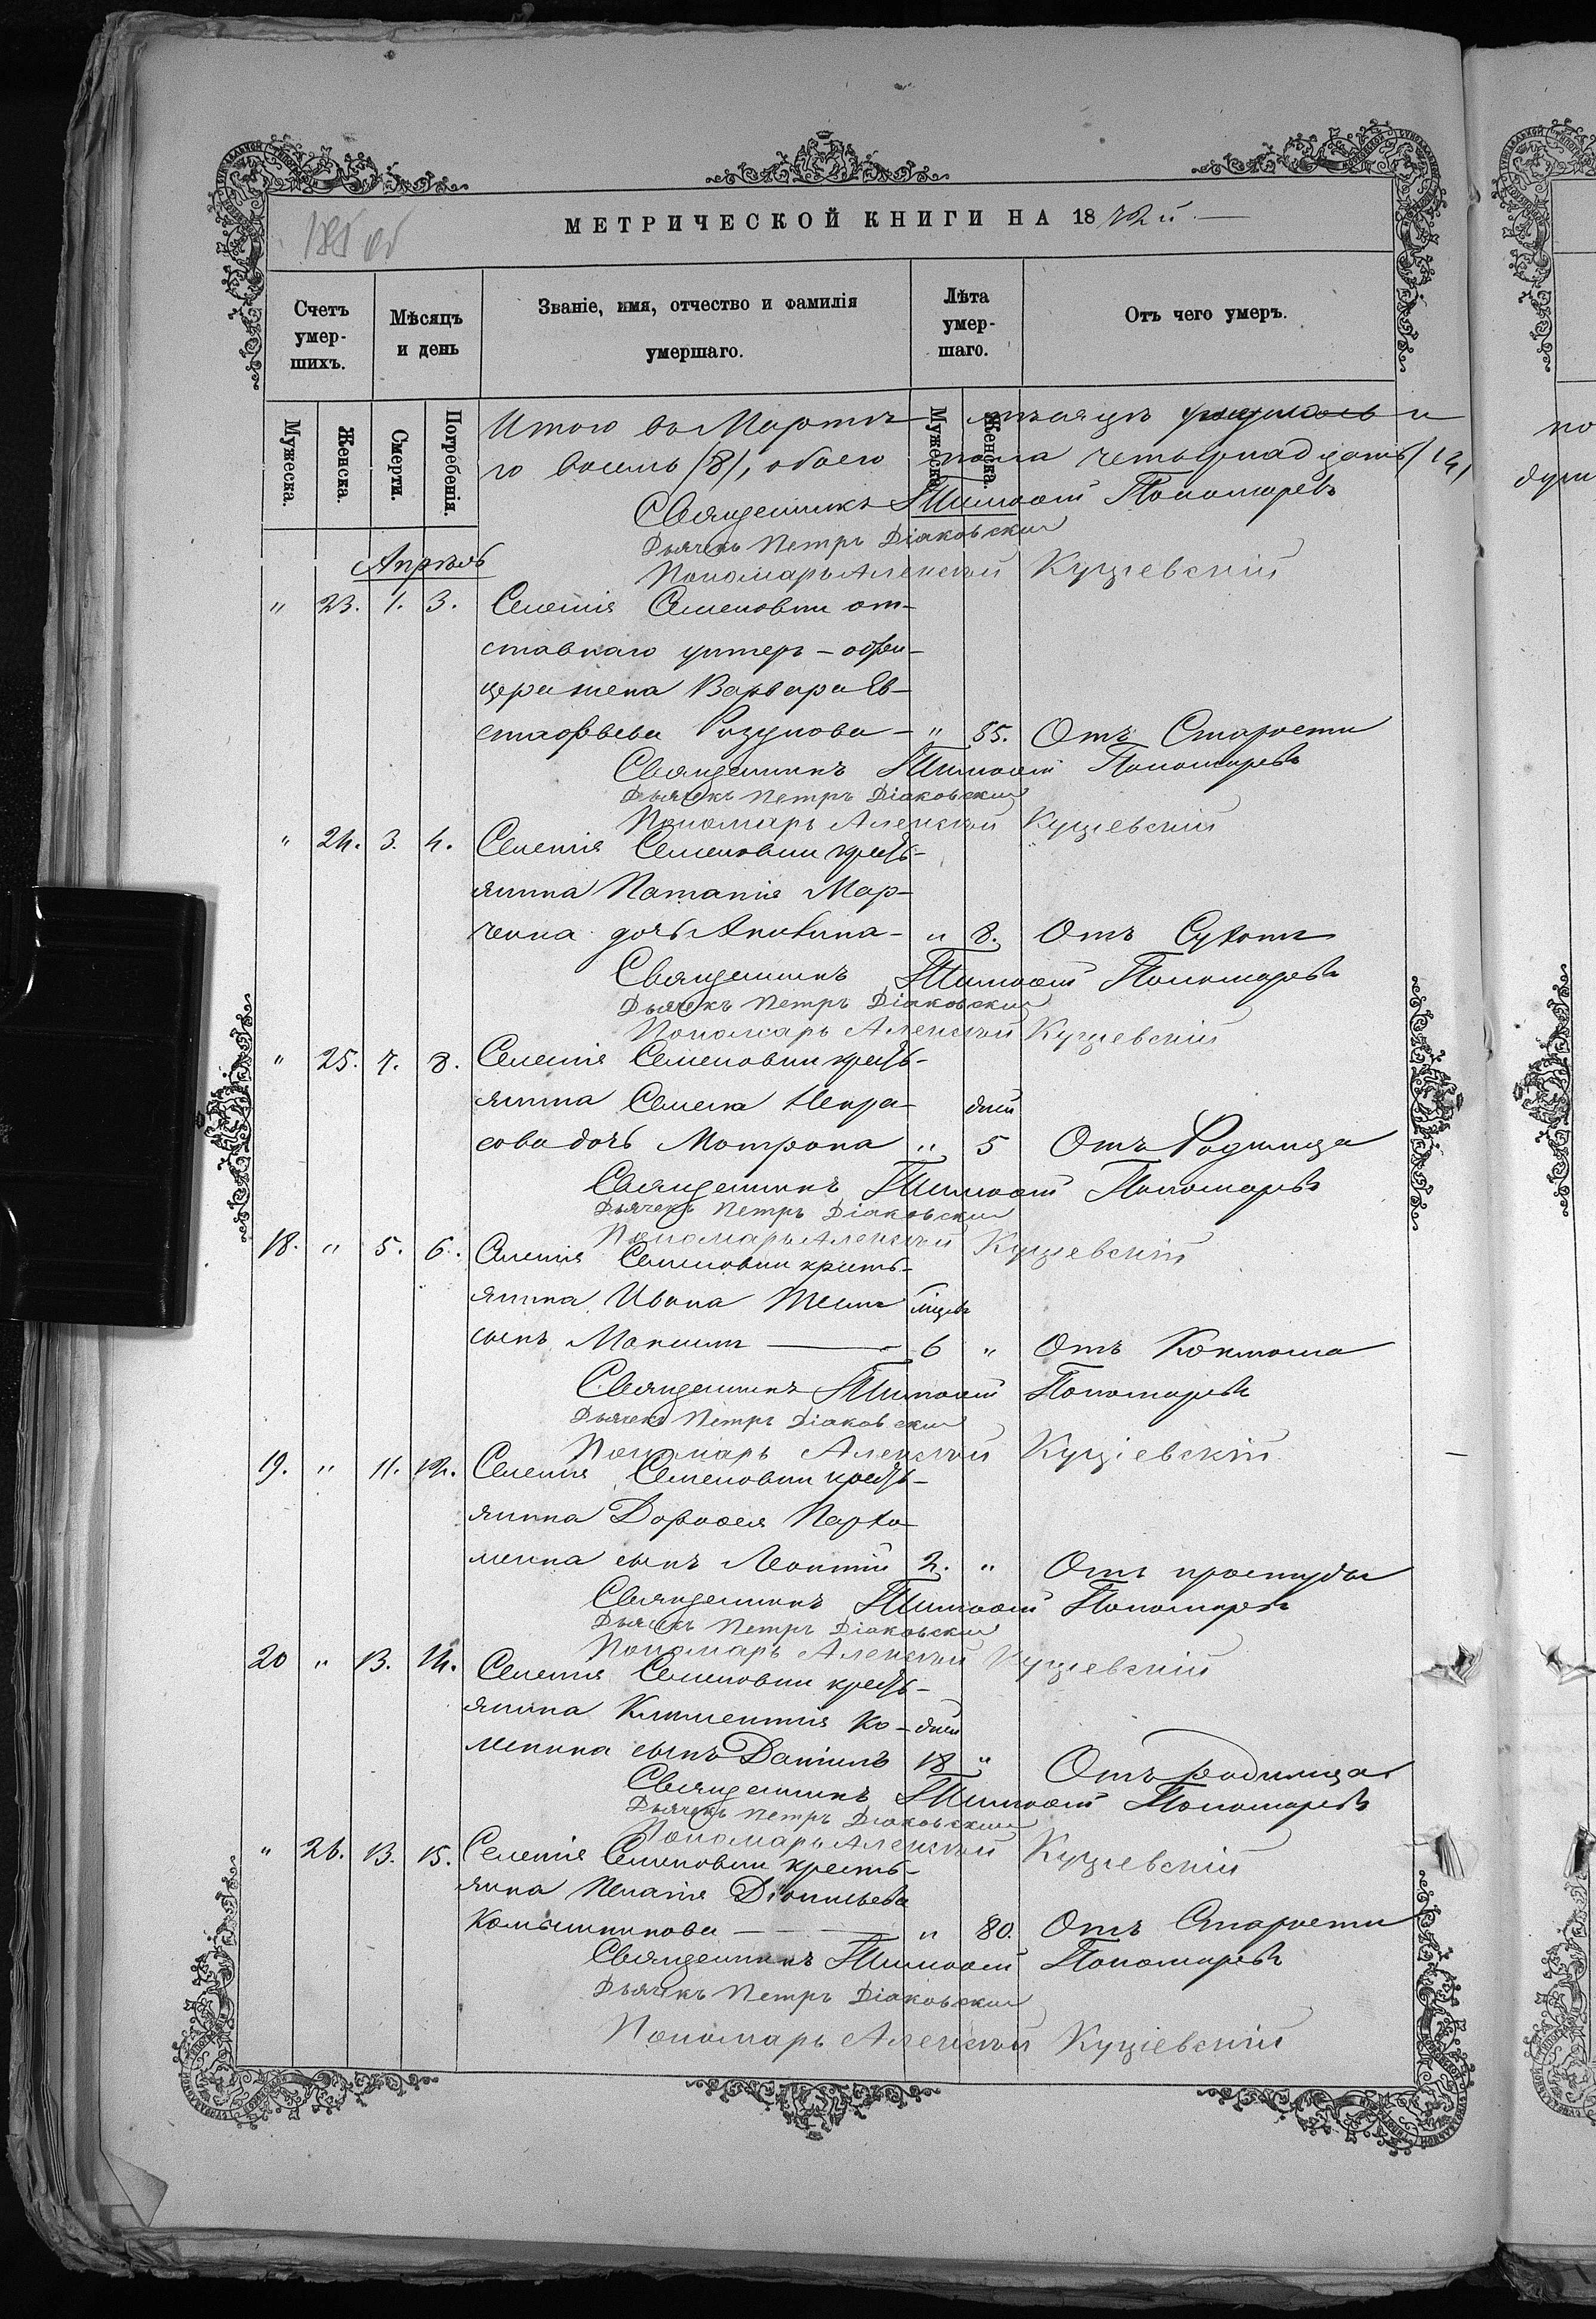 МЕТРИЧЕСКОЙ КНИГИ НА 1872й
Счетъ умер-шихъ.
Мѣсяцъ и день
Званіе, имя, отчество и фамилія умершаго.
Лѣта умер-шаго.
Отъ чего умеръ.
Мужеска.
Женска.
Смерти.
Погребенія.
Мужеска.
Женска.
Итого въ Мартѣ мѣсяцѣ
го восемь (8), обоего пола четырнадцать (14)
Священникъ Тимоѳей Пономаревъ
Дьячекъ Петръ Діаковскій
Пономарь Алексѣй Кущевскій
Апрѣль
" 23. 1. 3. Селенія Семеновки от-
ставнаго унтеръ-офи-
цера жена Варвара Ев-
стафьева Розунова - " 85. Отъ Старости
Священникъ Тимоѳей Пономаревъ
Дьячекъ Петръ Діаковскій
Пономарь Алексѣй Кущевскій
" 24. 3. 4. Селенія Семеновки кресть-
янина Потапія Мар-
ченка дочь - " 8. Отъ Сухотъ
Священникъ Тимоѳей Пономаревъ
Дьячекъ Петръ Діаковскій
Пономарь Алексѣй Кущевскій
" 25. 7. 8. Селенія Семеновки кресть-
янина Семена Некра-
дней
сова дочь Мотрона " 5 Отъ Родимца
Священникъ Тимоѳей Пономаревъ
Дьячекъ Петръ Діаковскій
Пономарь Алексѣй Кущевскій
18. " 5. 6. Селенія Семеновки кресть-
янина Ивана мѣсцевъ
сынъ Максимъ — 6 " Отъ Коклюша
Священникъ Тимоѳей Пономаревъ
Дьячекъ Петръ Діаковскій
Пономарь Алексѣй Кущевскій
19. " 11. 12. Селенія Семеновки кресть-
янина Дороѳея Пархо-
менка сынъ Леонтій 2. " Отъ простуды
Священникъ Тимоѳей Пономаревъ
Дьячекъ Петръ Діаковскій
Пономарь Алексѣй Кущевскій
20 " 13. 14. Селенія Семеновки кресть-
янина Климентія Ко- дней
менка сынъ Даніилъ 18 " Отъ родимца
Священникъ Тимоѳей Пономаревъ
Дьячекъ Петръ Діаковскій
Пономарь Алексѣй Кущевскій
" 26. 13. 15. Селенія Семеновки кресть-
янка Пелагія Діонисьева
Колышкинова — " 80. Отъ Старости
Священникъ Тимоѳей Пономаревъ
Дьячекъ Петръ Діаковскій
Пономарь Алексѣй Кущевскій